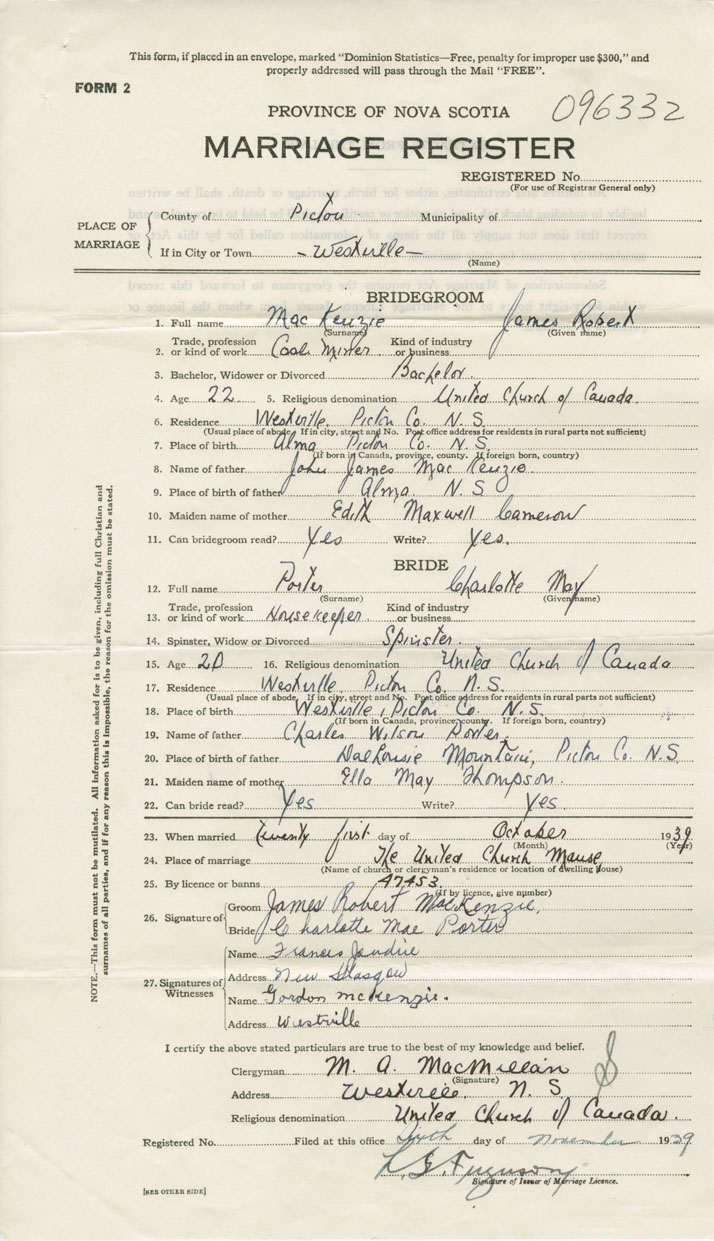 This form, if placed in an envelope, marked "Dominion Statistics—Free, penalty for improper use $300," and
properly addressed will pass through the Mail "FREE".
FORM 2
096332
PROVINCE OF NOVA SCOTIA
MARRIAGE REGISTER
REGISTERED No.
(For use of Registrar General only)
PLACE OF MARRIAGE
County of Pictou Municipality of
If in City or Town - Westville -
(Name)
BRIDEGROOM
1. Full name MacKenzie James Robert
(Surname) (Given name)
2. Trade, profession or kind of work Coal Miner Kind of industry or business
3. Bachelor, Widower or Divorced Bachelor
4. Age 22 5. Religious denomination United Church of Canada
6. Residence Westville, Pictou Co. N. S.
(Usual place of abode. If in city, street and No. Post office address for residents in rural parts not sufficient)
7. Place of birth Alma Pictou Co. N. S.
(If born in Canada, province, county. If foreign born, country)
8. Name of father John James MacKenzie
9. Place of birth of father Alma N. S
10. Maiden name of mother Edith Maxwell Cameron
11. Can bridegroom read? Yes Write? Yes.
BRIDE
12. Full name Porter Charlotte May
(Surname) (Given name)
13. Trade, profession or kind of work Housekeeper Kind of industry or business
14. Spinster, Widow or Divorced Spinster.
15. Age 20 16. Religious denomination United Church of Canada
17. Residence Westville, Pictou Co. N. S.
(Usual place of abode. If in city, street and No. Post office address for residents in rural parts not sufficient)
18. Place of birth Westville, Pictou Co. N. S.
(If born in Canada, province, county. If foreign born, country)
19. Name of father Charles Wilson Porter
20. Place of birth of father Dalhousie Mountain, Pictou Co. N. S.
21. Maiden name of mother Ella May Thompson.
22. Can bride read? Yes Write? Yes.
23. When married twenty first day of October 1939
(Month) (Year)
24. Place of marriage The United Church Manse
(Name of church or clergyman's residence or location of dwelling house)
25. By licence or banns 47453
(If by licence, give number)
26. Signature of
Groom James Robert MacKenzie,
Bride Charlotte Mae Porter
27. Signatures of Witnesses
Name Frances Jardine
Address New Glasgow
Name Gordon McKenzie.
Address Westville
I certify the above stated particulars are true to the best of my knowledge and belief.
Clergyman M. A. MacMillan
(Signature)
Address Westville, N. S
Religious denomination United Church of Canada.
Registered No. Filed at this office day of November 1939
L. G. Ferguson
Signature of Issuer of Marriage Licence.
[SEE OTHER SIDE]
NOTE.—This form must not be mutilated. All information asked for is to be given, including full Christian and
surnames of all parties, and if for any reason this is impossible, the reason for the omission must be stated.